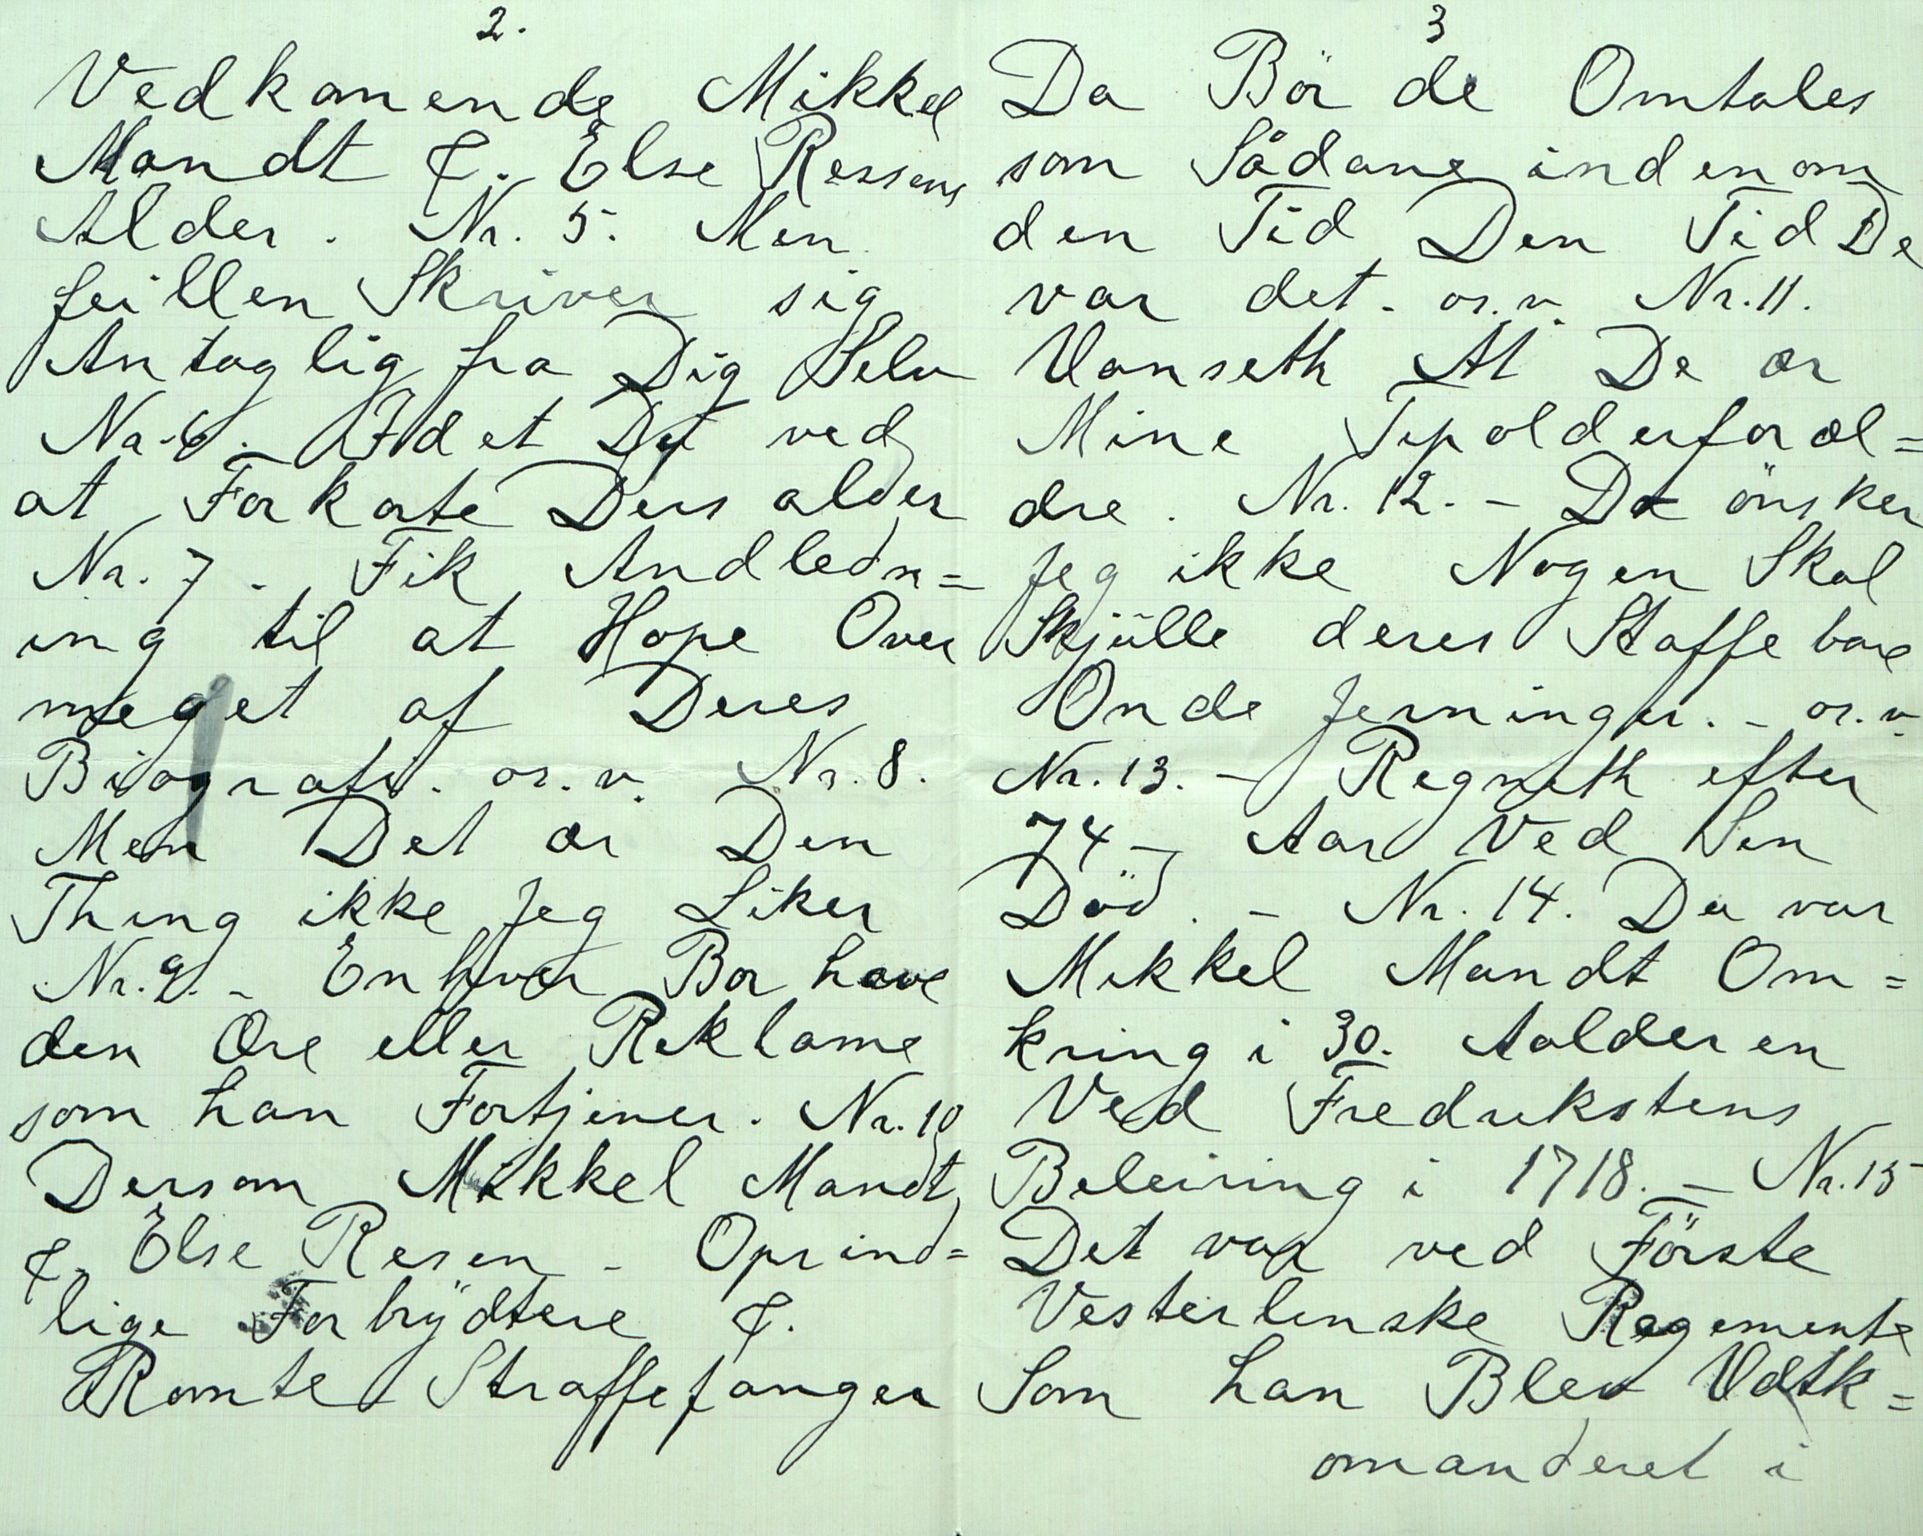 2.
Vedkomende Mikkel
Mandt &. Else Ressens
Alder. Nr. 5. Men
feillen Skriver sig
Antaglig fra Dig Selv
Nr. 6. - Idet Du ved
at Forkorte Ders alder
Nr. 7. Fik Andledn=
ing til at Hope Over
meget af Deres
Biografi. os. v. Nr. 8.
Men Det er Den
Thing ikke Jeg Liker
Nr. 9. - Enhver Bor have
den Ære eller Reklame
som han Fortjener. Nr. 10
Dersom Mikkel Mandt
&. Else Resen - Oprind=
lige Forbrÿdtere &.
Römte Straffefanger
3
Da Bör de Omtales
som Sådane indenom
den Tid Den Tid De
var det. os. v. Nr. 11.
Uanseth At De er
Mine Tipolderforæl=
dre. Nr. 12. - Da önsker
Jeg ikke Nogen Skal
Skjülle deres Staffe bare
Onde Jerninger. - os. v.
Nr. 13. - Regneth efter
74 - Aar Ved Sen
Död. - Nr. 14. Da var
Mikkel Mandt Om=
kring i 30. Aalderen
Ved Fredrikstens
Beleiring i 1718. - Nr. 15
Det var ved Förste
Vesterlenske Regemente
Som han Blev Udtk=
omanderet i